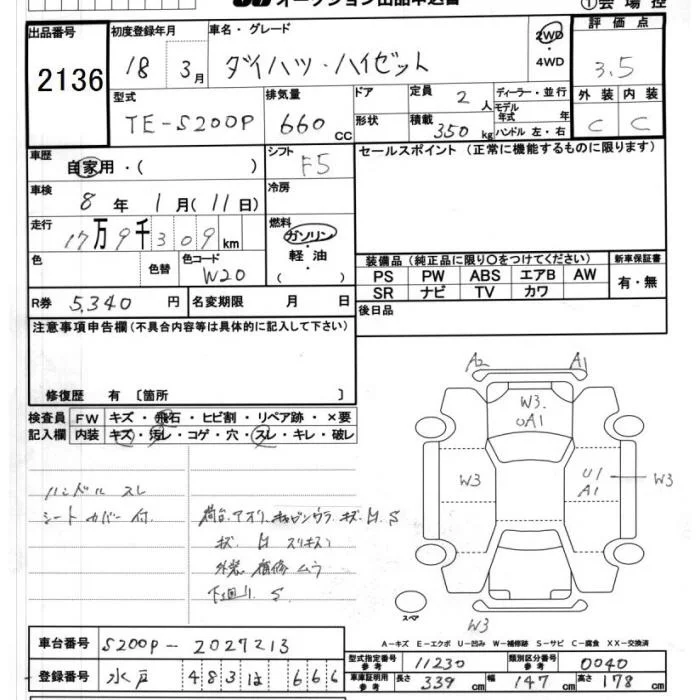 オークション出品申込書 ①会場控
出品番号 2136
初度登録年月 18年 3月
車名・グレード ダイハツ・ハイゼット
2WD・4WD
評価点 3.5
外装 C 内装 C
型式 TE-S200P
排気量 660 CC
ドア
形状
定員 2 人
積載 350 kg
ディーラー・並行
モデル年式 年
ハンドル 左・右
車歴 自家用・( )
シフト F5
セールスポイント(正常に機能するものに限ります)
車検 8 年 1 月 (11 日)
冷房
走行 17万9千309 km
燃料 ガソリン 軽油 ( )
色 色替 色コード W20
装備品(純正品に限り○をつけてください)
新車保証書 有・無
PS PW ABS エアB AW
SR ナビ TV カワ
R券 5,340 円
名変期限 月 日
後日品
注意事項申告欄(不具合内容等は具体的に記入して下さい)
修復歴 有 〔箇所 〕
検査員記入欄
FW キズ・飛石・ヒビ割・リペア跡・×要
内装 キズ・汚レ・コゲ・穴・スレ・キレ・破レ
ハンドル スレ
シートカバー付
荷台、アオリ、キャビンウラ、キズ、H、S
キズ、H スリキズ
外装 補修 ムラ
下回リ S
A2 A1
W3. UA1
W3
U1 A1 W3
W3
スペア
A-キズ E-エクボ U-凹み W-補修跡 S-サビ C-腐食 XX-交換済
車台番号 S200P-2027213
登録番号 水戸 483 ほ 666
型式指定番号 参考 11230
類別区分番号 参考 0040
車庫証明用 参考 長さ 339 cm 幅 147 cm 高さ 178 cm